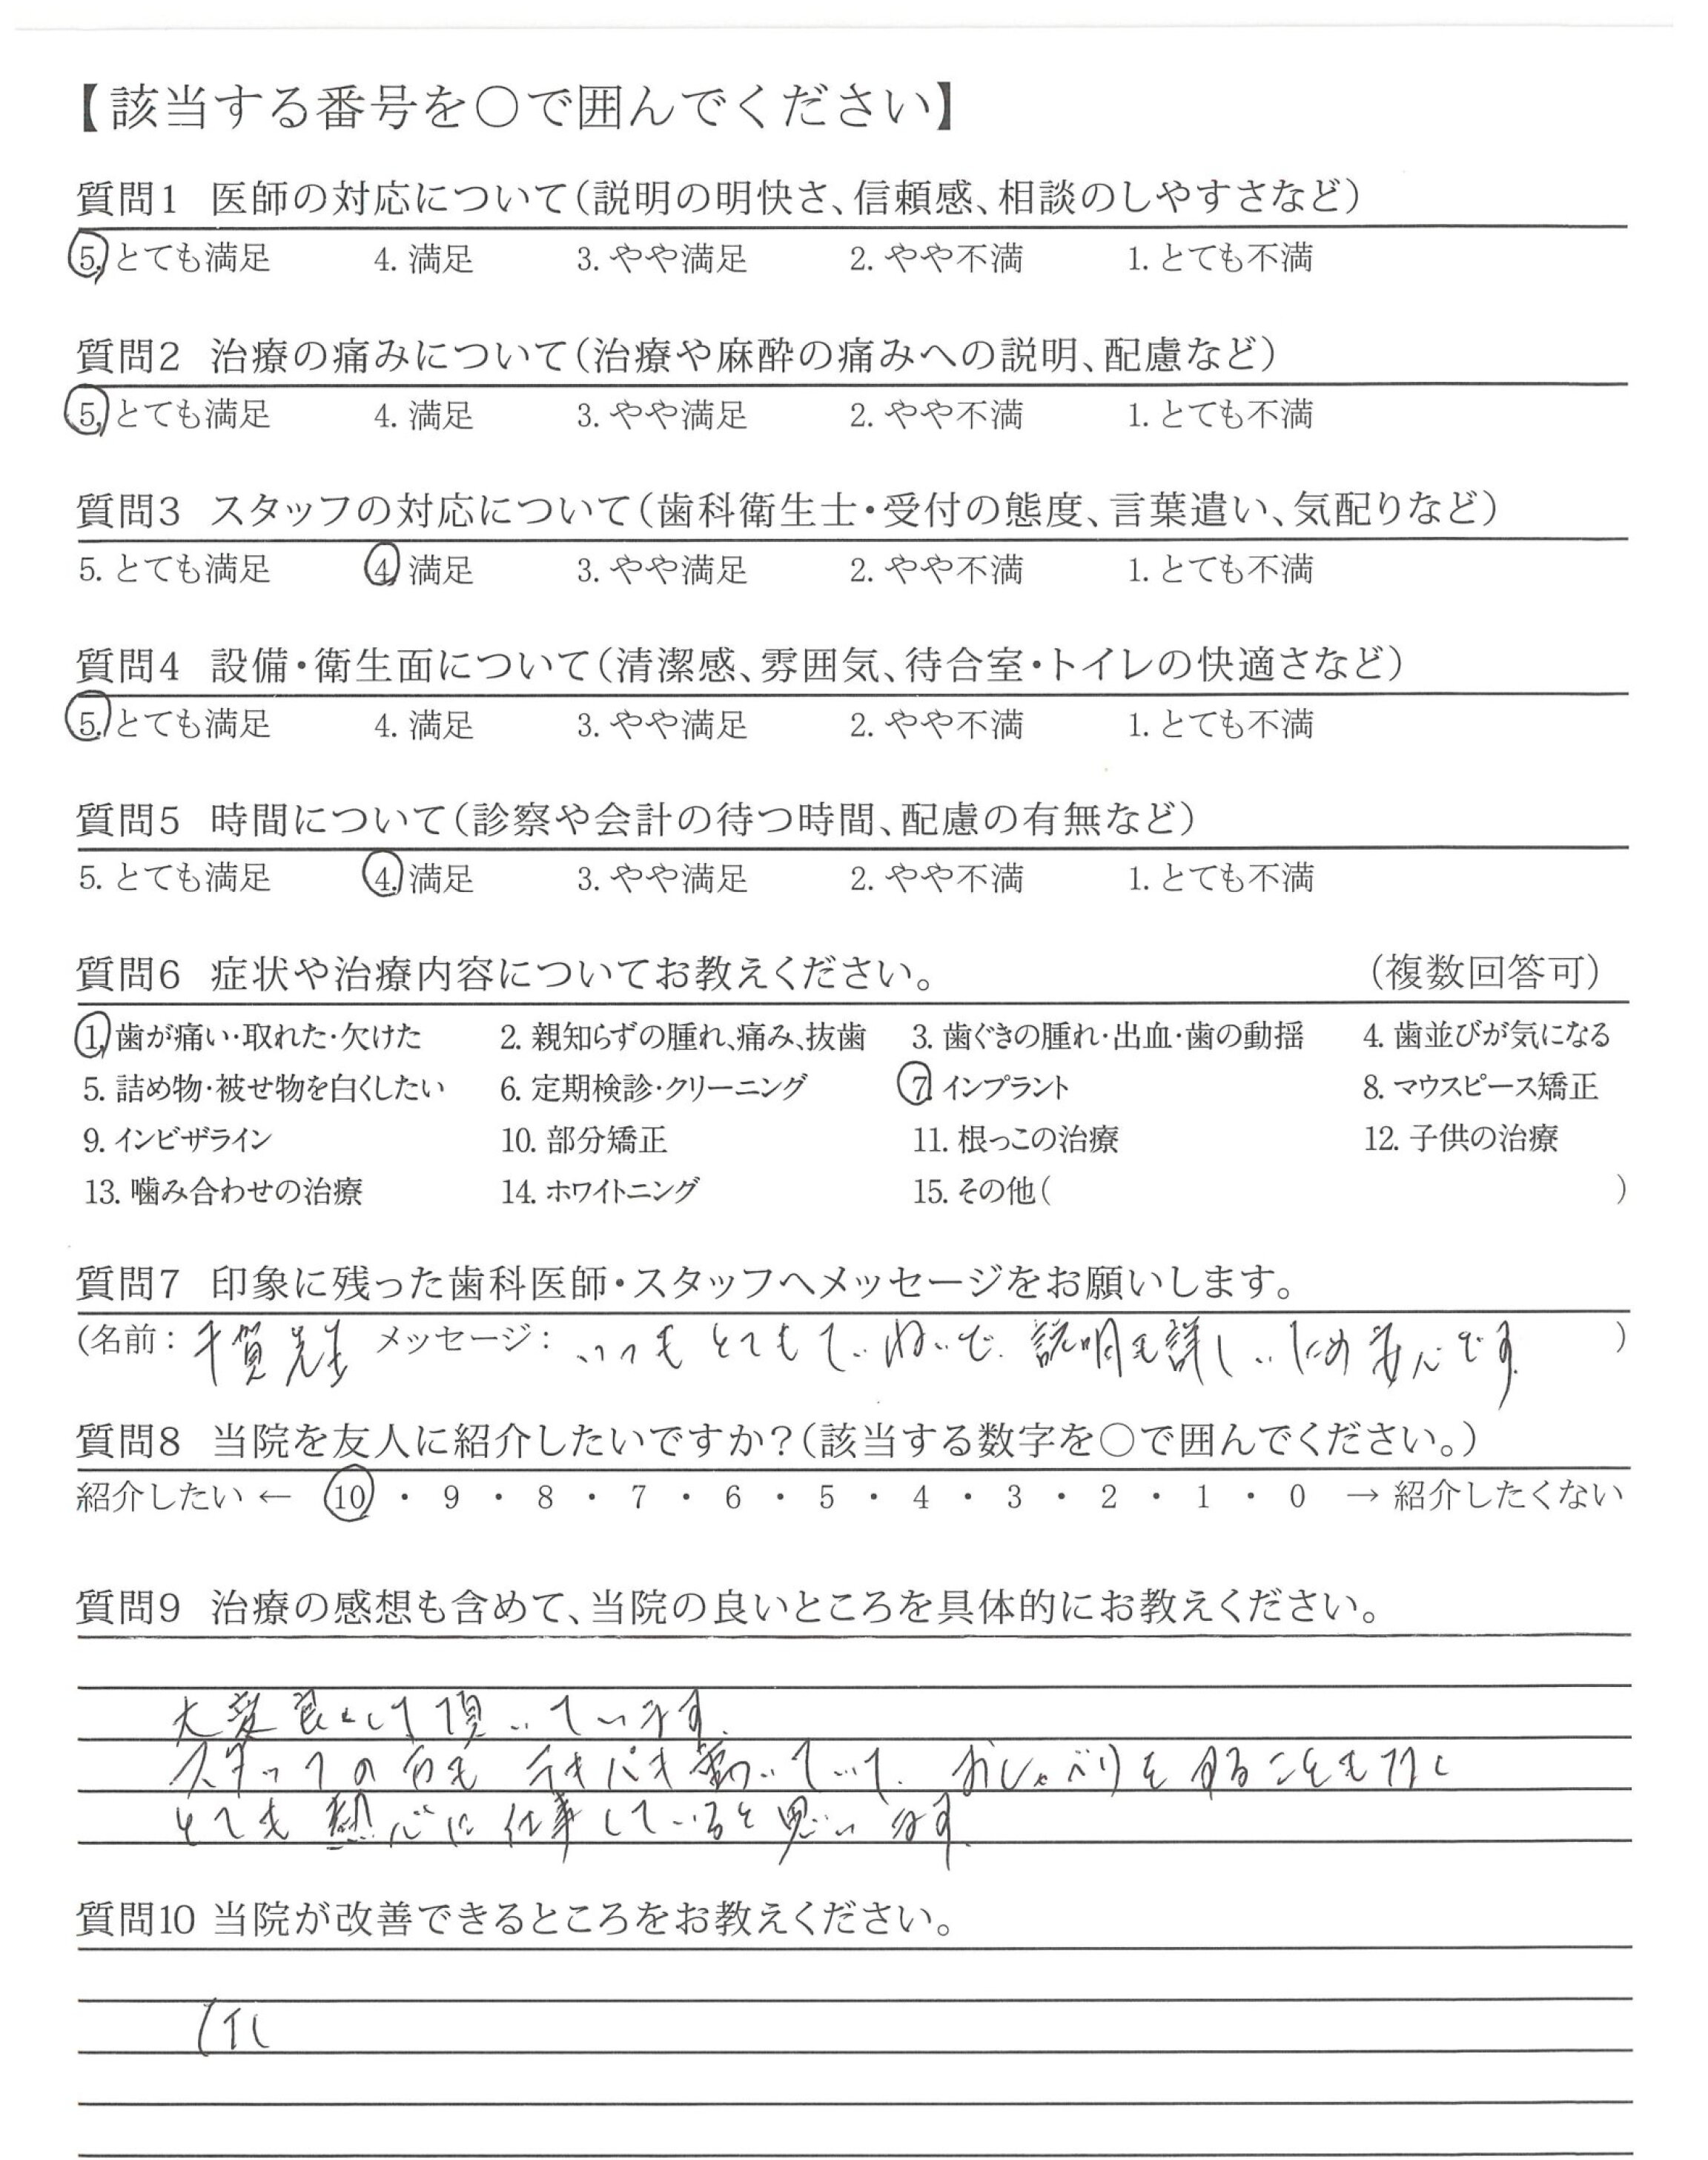 【該当する番号を○で囲んでください】
質問1 医師の対応について(説明の明快さ、信頼感、相談のしやすさなど)
5. とても満足 4. 満足 3. やや満足 2. やや不満 1. とても不満
質問2 治療の痛みについて(治療や麻酔の痛みへの説明、配慮など)
5. とても満足 4. 満足 3. やや満足 2. やや不満 1. とても不満
質問3 スタッフの対応について(歯科衛生士・受付の態度、言葉遣い、気配りなど)
5. とても満足 4. 満足 3. やや満足 2. やや不満 1. とても不満
質問4 設備・衛生面について(清潔感、雰囲気、待合室・トイレの快適さなど)
5. とても満足 4. 満足 3. やや満足 2. やや不満 1. とても不満
質問5 時間について(診察や会計の待つ時間、配慮の有無など)
5. とても満足 4. 満足 3. やや満足 2. やや不満 1. とても不満
質問6 症状や治療内容についてお教えください。 (複数回答可)
1. 歯が痛い・取れた・欠けた 2. 親知らずの腫れ、痛み、抜歯 3. 歯ぐきの腫れ・出血・歯の動揺 4. 歯並びが気になる
5. 詰め物・被せ物を白くしたい 6. 定期検診・クリーニング 7. インプラント 8. マウスピース矯正
9. インビザライン 10. 部分矯正 11. 根っこの治療 12. 子供の治療
13. 噛み合わせの治療 14. ホワイトニング 15. その他( )
質問7 印象に残った歯科医師・スタッフへメッセージをお願いします。
(名前: 千賀先生 メッセージ: いつもとてもていねいで、説明も詳しいため安心です。 )
質問8 当院を友人に紹介したいですか?(該当する数字を○で囲んでください。)
紹介したい ← 10 ・ 9 ・ 8 ・ 7 ・ 6 ・ 5 ・ 4 ・ 3 ・ 2 ・ 1 ・ 0 → 紹介したくない
質問9 治療の感想も含めて、当院の良いところを具体的にお教えください。
大変良くして頂いています。
スタッフの方も テキパキ動いていて、おしゃべりをすることも
とても熱心に仕事していると思います。
質問10 当院が改善できるところをお教えください。